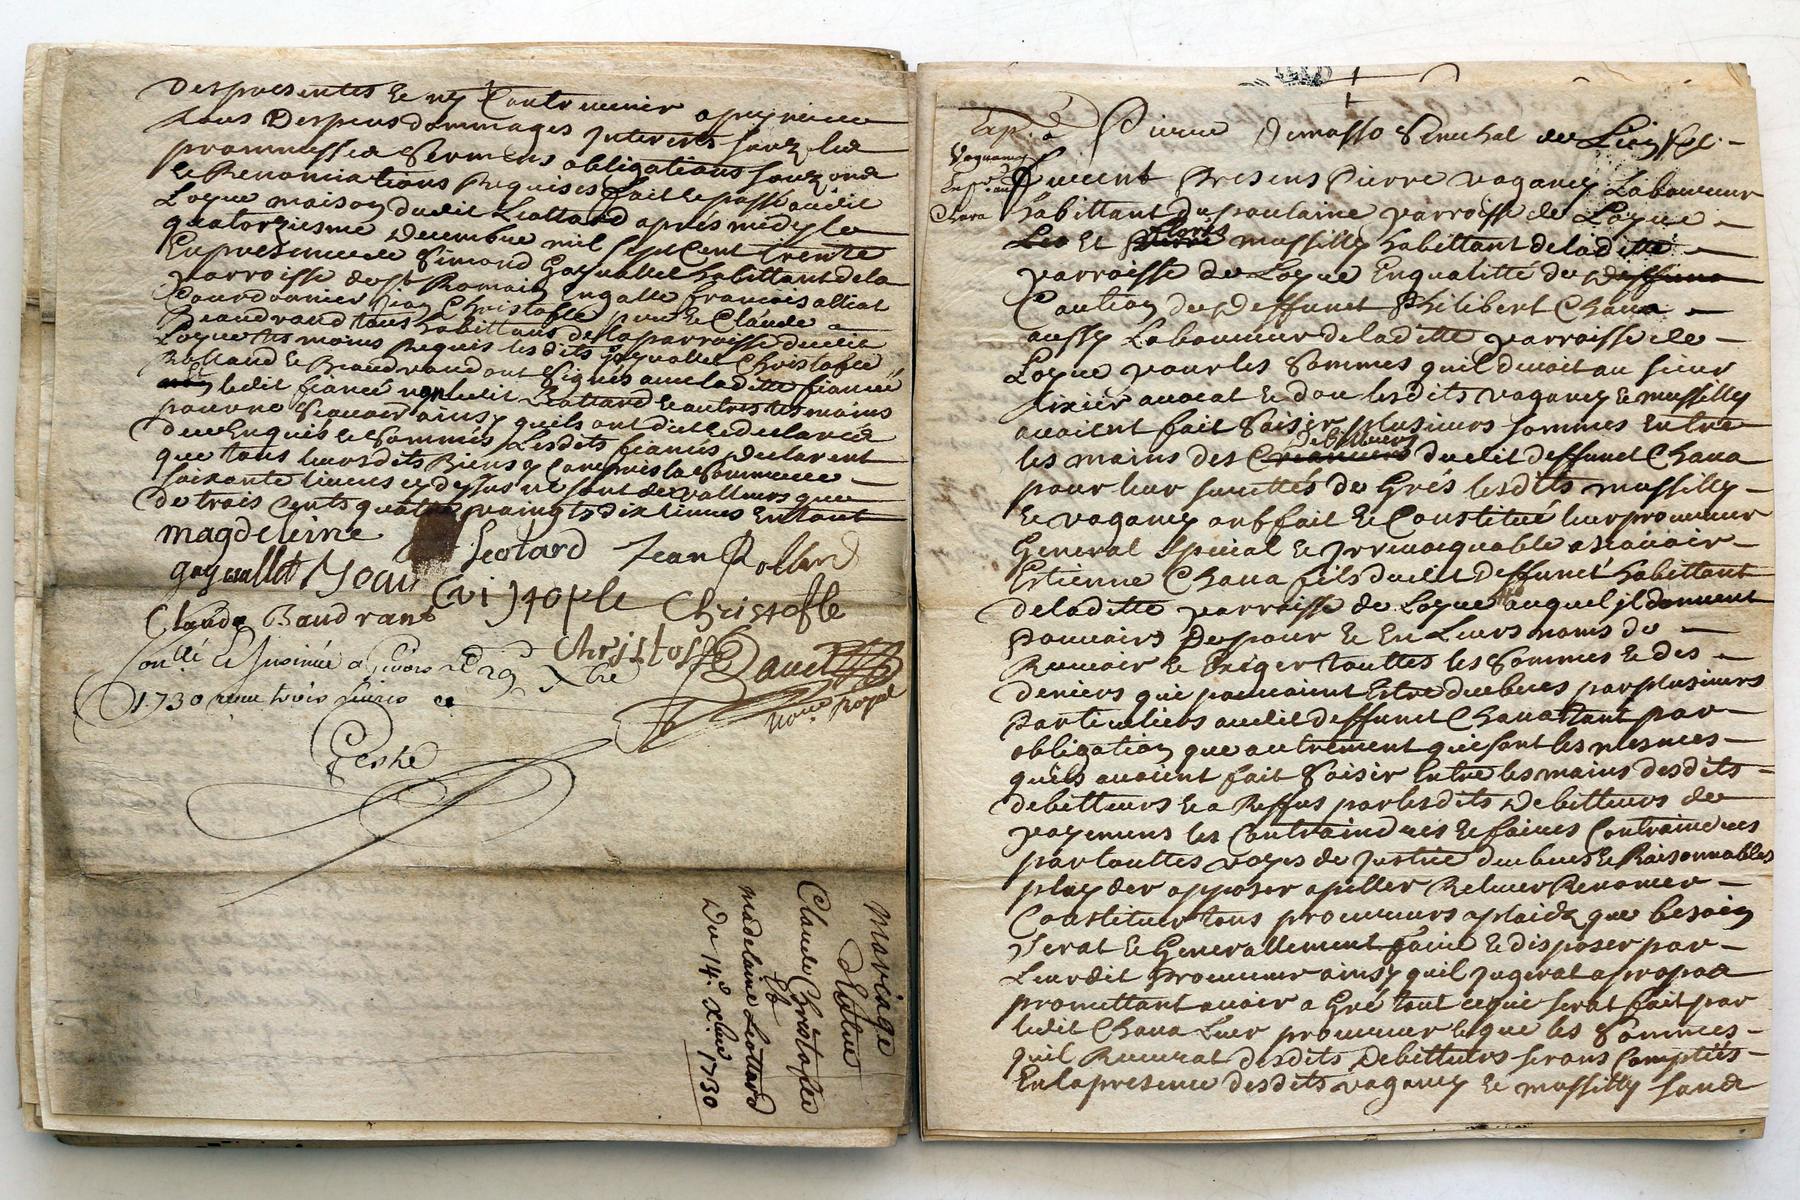 des presentes et ny Contrevenir a peyne de
tous Despens dommages Interets souz les
promesses sermens obligations souz
et Renonciations Requises fait et passé audit
Loyre maison dudit Leottard après midy le
quatorziesme decembre mil sept cent trente
En presence de Simond Gayvallet habittant de la
parroisse de st Romain en galle françois
Courdonnier Jean Christofle et Claude
Beaudrand tous habittans de la parroisse dudit
Loyre tesmoins Requis lesdits gayvallet Christofle
Rolland et Beaudrand ont signés avec laditte fiancée
ledit fiancé non ledit Leottard et autres tesmoins
pour ne sçavoir ainsy quils ont dit et declaré
de ce Enquis et sommés Lesdits fiancés declarent
que tous leursdits Biens y compris la somme de
soixante livres cy dessus ne sont de valleurs que
de trois cents quatre vaingts dix livres Entout
magdeleine Leotard Jean Rolland
gayvallet
Claude Baudrand Christofle
Christofle
Conllé et Insinué a Givors le 29 Xbre
1730 receu trois livres
Not. Royal
Mariage
d'Entre
Claude Christofle
Et
madelaine Leottard
Du 14e xbre 1730
Exp. a
Vaganay
Chava
Pierre Dumasso senechal de Lion
Furent Presens Pierre vaganay Laboureur
habittant du parroisse de Loyre
Et Pierre Cloris massilly habittant de laditte
parroisse de Loyre En qualitté de deffunct
Caution de deffunct Philibert Chava
aussy Laboureur de laditte parroisse de
Loyre pour les sommes quil devoit au sieur
avocat et dou lesdits vaganay et massilly
avoient fait saisir plusieurs sommes Entre
les mains des Creanciers debitteurs dudit deffunct Chava
pour leur surettés de Grés lesdits massilly
et vaganay ont fait et Constitué leur procureur
General special et Irrevocquable ascavoir
Estienne Chava fils dudit deffunct habittant
de laditte parroisse de Loyre auquel il donnent
Pouvoirs De pour et En Leurs noms de
Recevoir et Exiger touttes les sommes et des
deniers que pouvoient Estre deubues par plusieurs
particuliers audit deffunct Chava tant par
obligation que autrement qui sont les mesmes
quils avoient fait saisir Entre les mains desdits
debitteurs et a Reffus par lesdits Debitteurs de
payemens les Contraindres et faires Contraindres
par touttes voyes de justice deubues et Raisonnables
playder opposer apeller Relever Renoncer
Constituer tous procureurs a plaids que besoin
serat et Generallement faire et disposer par
Leurdit Procureur ainsy quil jugerat a propos
promettant avoir a Gré tout ce qui serat fait par
ledit Chava Leur procureur et que les sommes
quil Recevrat desdits Debitteurs serons Comptées
En la presence desdits vaganay et massilly sans